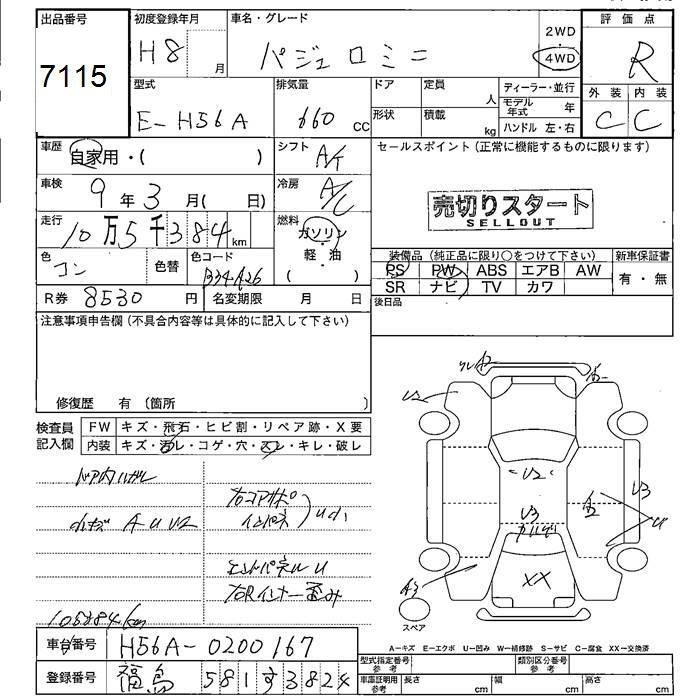 出品番号
7115
初度登録年月
H8 月
車名・グレード
パジェロミニ
2WD
4WD
評価点
R
型式
E-H56A
排気量
660 cc
ドア
形状
定員
人
積載
kg
ディーラー・並行
モデル年式 年
ハンドル 左・右
外装 内装
C C
車歴
自家用・( )
シフト
A/T
セールスポイント(正常に機能するものに限ります)
売切りスタート
SELLOUT
車検
9年3月( 日)
冷房
A/C
走行
10万5千384km
燃料
ガソリン
・
軽・油
( )
色
コン
色替
色コード
B34A26
装備品(純正品に限り○をつけて下さい)
新車保証書
PS PW ABS エアB AW
有・無
SR ナビ TV カワ
R券 8530 円
名変期限 月 日
後日品
注意事項申告欄(不具合内容等は具体的に記入して下さい)
修復歴 有(箇所 )
検査員
記入欄
FW キズ・飛石・ヒビ割・リペア跡・X要
内装 キズ・汚レ・コゲ・穴・スレ・キレ・破レ
ドア内ハガレ
小キズ A U U2
右コアサポ
インパネ
エンドパネル U
右Rインナー歪み
105384km
A2
U2
U2
U3
U3
U
A3
XX
スペア
A-キズ E-エクボ U-凹み W-補修跡 S-サビ C-腐食 XX-交換済
車台番号
H56A-0200167
登録番号
福島 581 す 3824
型式指定番号
参考
類別区分番号
参考
車庫証明用
参考
長さ cm
幅 cm
高さ cm